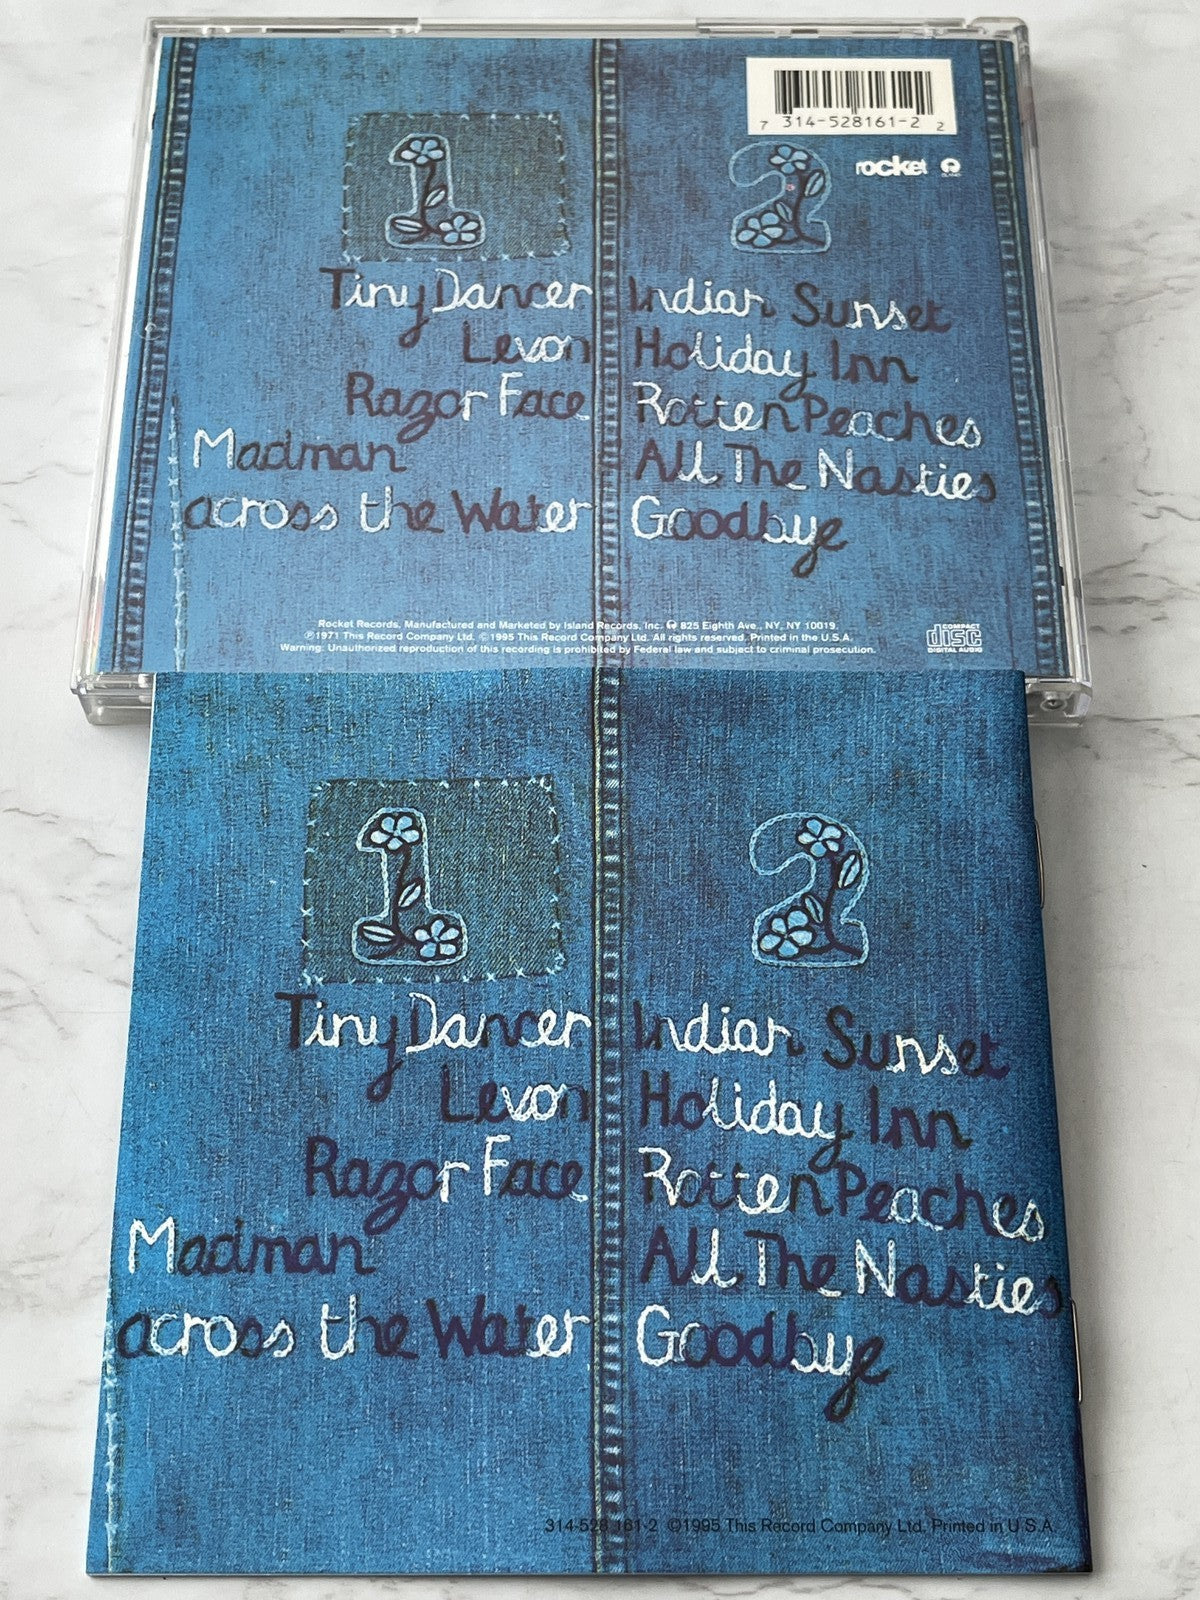 7 314-528161-2 2
rocket
ISLAND
1
Tiny Dancer
Levon
Razor Face
Madman
across the Water
2
Indian Sunset
Holiday Inn
Rotten Peaches
All The Nasties
Goodbye
Rocket Records, Manufactured and Marketed by Island Records, Inc. 825 Eighth Ave., NY, NY 10019.
℗1971 This Record Company Ltd. ©1995 This Record Company Ltd. All rights reserved. Printed in the U.S.A.
Warning: Unauthorized reproduction of this recording is prohibited by Federal law and subject to criminal prosecution.
COMPACT
disc
DIGITAL AUDIO
1
Tiny Dancer
Levon
Razor Face
Madman
across the Water
2
Indian Sunset
Holiday Inn
Rotten Peaches
All The Nasties
Goodbye
314-528 161-2 ©1995 This Record Company Ltd. Printed in U.S.A.